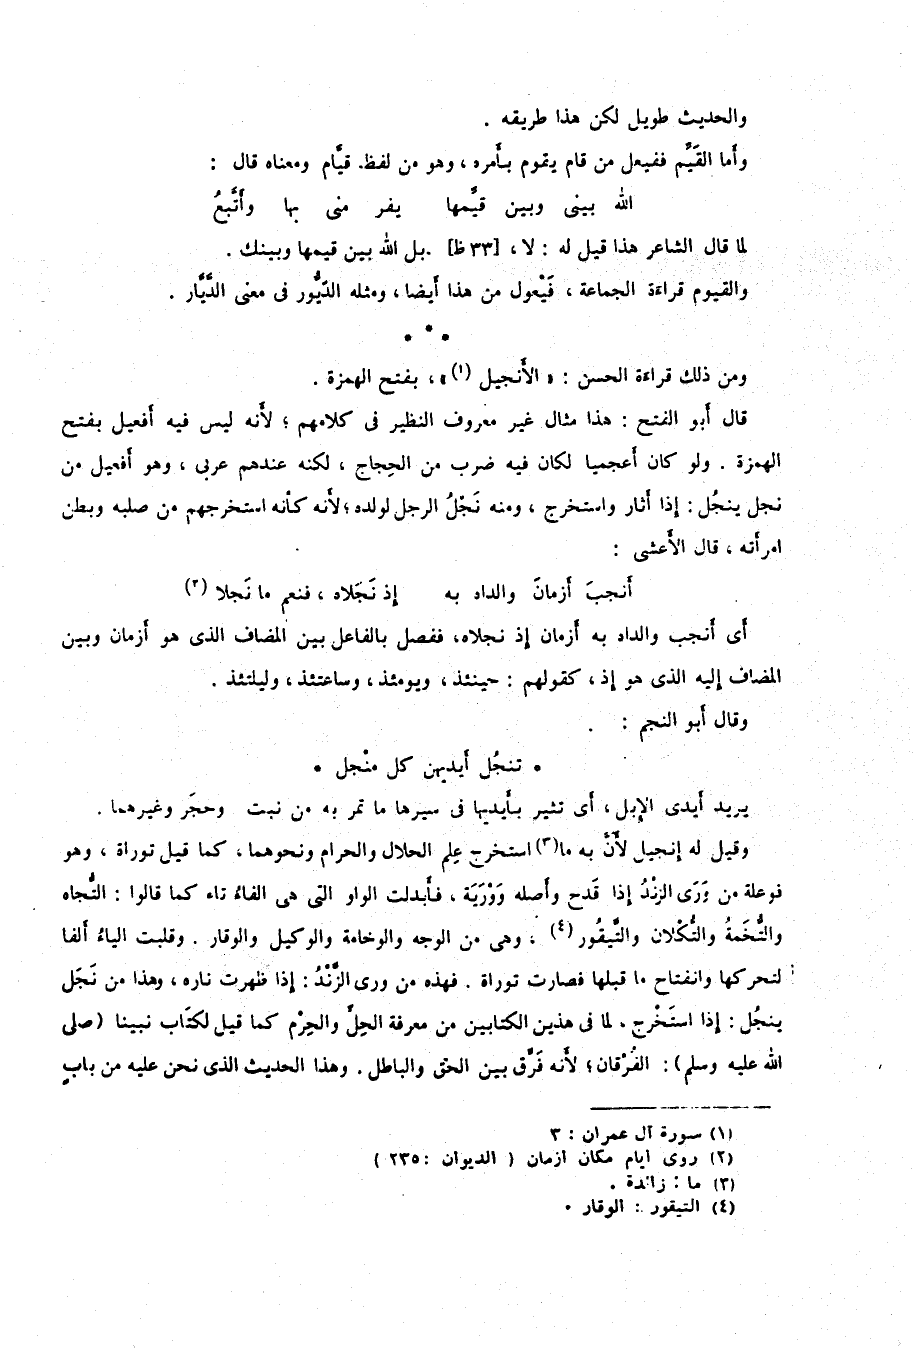 والحديث طويل لكن هذا طريقه .
وأما القَيِّم ففيعل من قام يقوم بأمره ، وهو من لفظ قيَّام ومعناه قال :
الله بينى وبين قيِّمها يفر منى بها وأَتَّبعُ
لما قال الشاعر هذا قيل له : لا ، [٣٣ ظ] .بل الله بين قيمها وبينك .
والقيوم قراءة الجماعة ، فَيْعول من هذا أيضا ، ومثله الدَّيُّور فى معنى الدَّيَّار .
* * *
ومن ذلك قراءة الحسن : « الأَنجيل (١) » ، بفتح الهمزة .
قال أبو الفتح : هذا مثال غير معروف النظير فى كلامهم ؛ لأَنه ليس فيه أَفعيل بفتح
الهمزة . ولو كان أَعجميا لكان فيه ضرب من الحِجاج ، لكنه عندهم عربى ، وهو أفعيل من
نجل ينجُل : إذا أثار واستخرج ، ومنه نَجْلُ الرجل لولده ؛ لأَنه كأنه استخرجهم من صلبه وبطن
امرأته ، قال الأَعشى :
أَنجبَ أَزمانَ والداه به إذ نَجَلاه ، فنعم ما نَجلا (٢)
أى أَنجب والداه به أزمان إذ نجلاه، ففصل بالفاعل بين المضاف الذى هو أزمان وبين
المضاف إليه الذى هو إذ ، كقولهم : حينئذ ، ويومئذ ، وساعتئذ ، وليلتئذ .
وقال أبو النجم :
* تنجُل أيديهن كل منْجل *
يريد أَيدى الإبل ، أى تثير بأَيديها فى سيرها ما تمر به من نبت وحجَر وغيرهما .
وقيل له إنجيل لأَنَّ به ما(٣) استخرج عِلم الحلال والحرام ونحوهما ، كما قيل توراة ، وهو
فوعلة من وَرَى الزنْدُ إذا قَدح وأصله وَوْرَيَة ، فأبدلت الواو التى هى الفاءُ تاء كما قالوا : التُّجاه
والتُّخَمةُ والتُّكْلان والتَّيقُور (٤) ، وهى من الوجه والوخامة والوكيل والوقار . وقلبت الياءُ ألفا
لتحركها وانفتاح ما قبلها فصارت توراة . فهذه من ورى الزَّنْدُ : إذا ظهرت ناره ، وهذا من نَجَل
ينجُل : إذا استَخْرج . لما فى هذين الكتابين من معرفة الحِلّ والحِرْم كما قيل لكتاب نبينا (صلى
الله عليه وسلم) : الفُرْقان ؛ لأَنه فَرَّق بين الحق والباطل . وهذا الحديث الذى نحن عليه من بابٍ
(١) سورة آل عمران : ٣
(٢) روى ايام مكان ازمان ( الديوان : ٢٣٥ )
(٣) ما : زائدة .
(٤) التيقور : الوقار .